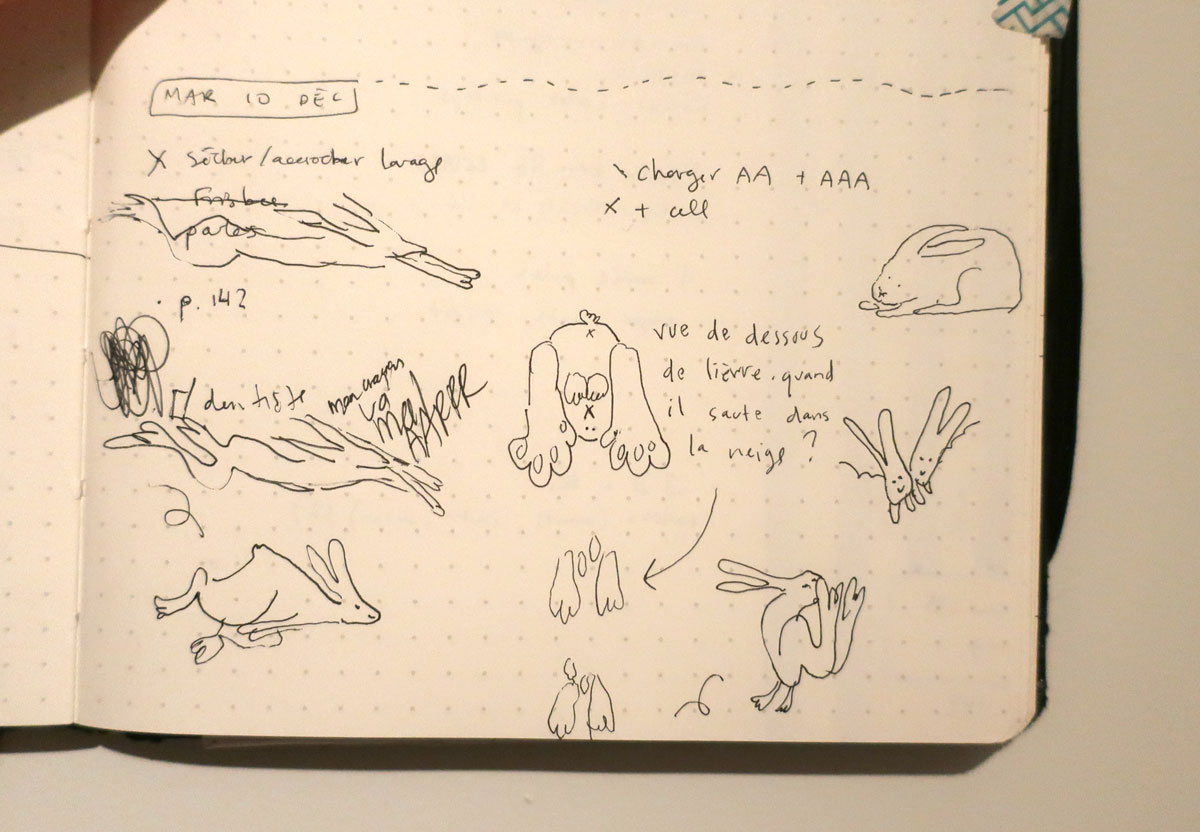 MAR 10 DÉC
X Sécher/accrocher lavage
Frisbee
pates
· p. 142
dentiste
mon crayon
va
mal
ARRR
\ charger AA + AAA
X + cell
vue de dessous
de lièvre quand
il saute dans
la neige ?